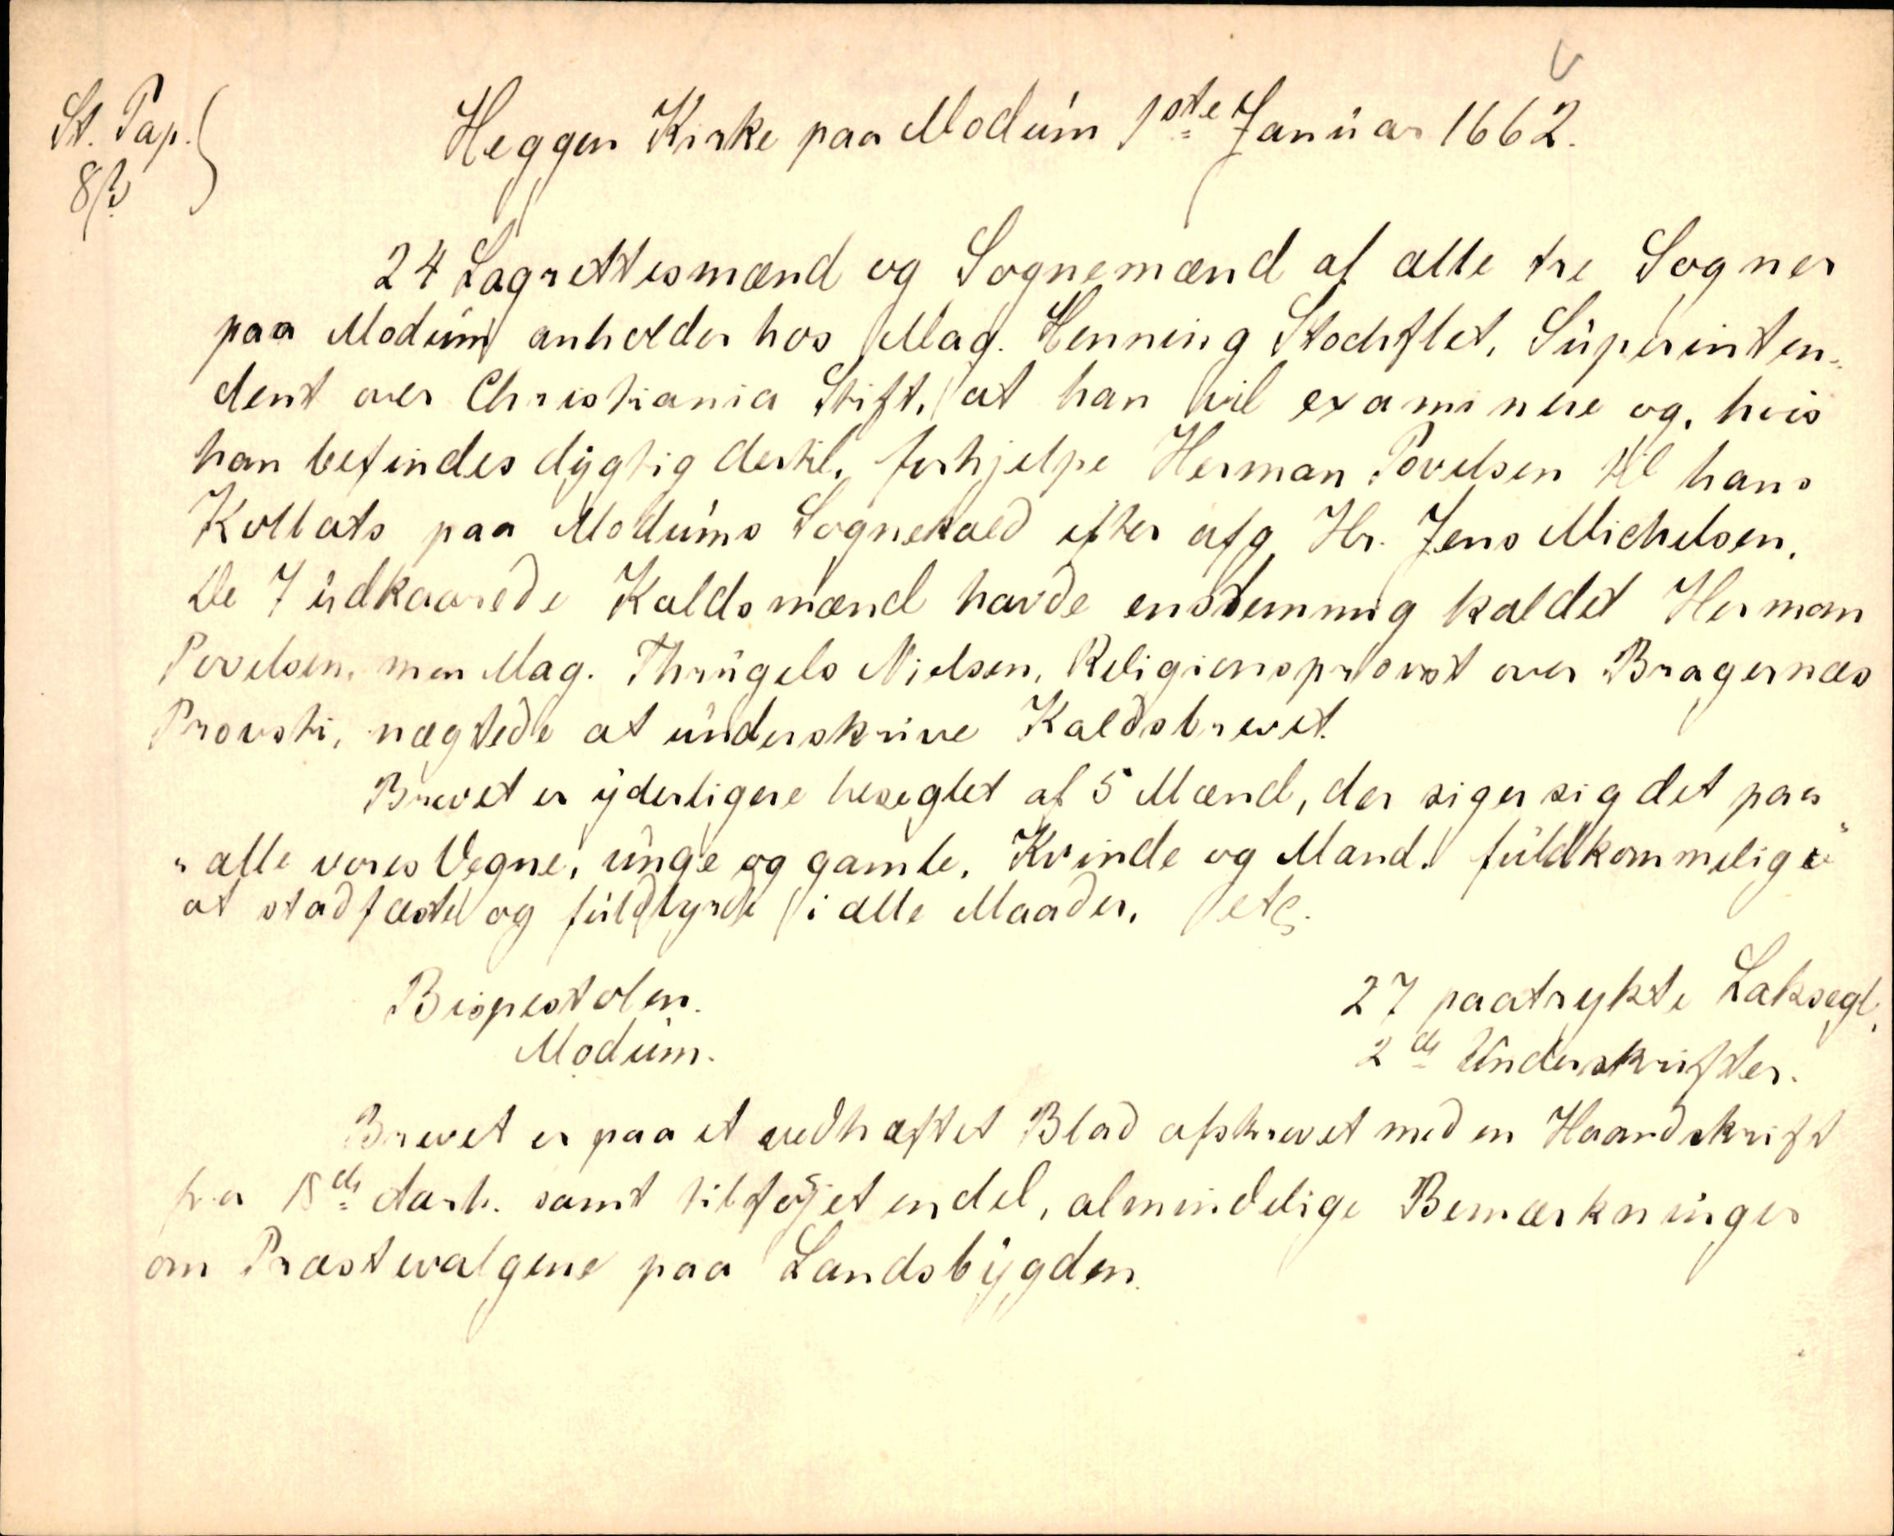 St. Pap.
Heggen Kirke paa Modum 1ste Januar 1662.
24 Lagrettesmænd og Sognemænd af alle tre Sogner
paa Modum anholder hos Mag. Henning Stockflet, Superinten-
dent over Christiania Stift, at han vil examinere og, hvis
han befindes dygtig dertil, forhjelpe Herman Povelsen til hans
Kollats paa Modums Sognekald efter afg. Hr. Jens Michelsen.
De 7 udkaarede Kaldsmænd havde enstemmig kaldet Herman
Povelsen, men Mag. Thrugels Nielsen, Religionsprovst over Bragernæs
Provsti, nægtede at underskrive Kaldsbrevet.
Brevet er yderligere beseglet af 5 Mænd, der siger sig det paa
"alle vores Vegne, unge og gamle, Kvinde og Mand. fuldkommelige"
at stadfæste og fuldbyrde i alle Maader, etc.
Bispestolen.
Modum.
27 paatrykte Laksegl,
2de Underskrifter.
Brevet er paa et vedhæftet Blad afskrevet med en Haandskrift
fra 18de Aarh. samt tilføjet endel, almindelige Bemærkninger
om Præstevalgene paa Landsbygden.